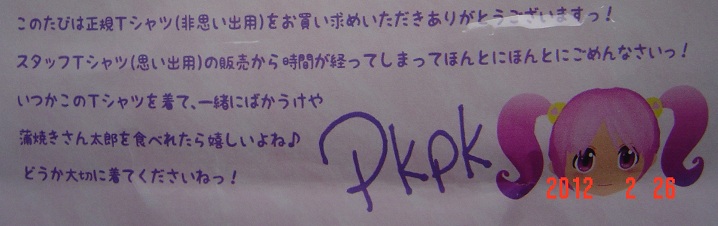 このたびは正規Tシャツ(非思い出用)をお買い求めいただきありがとうございますっ!
スタッフTシャツ(思い出用)の販売から時間が経ってしまってほんとにほんとにごめんなさいっ!
いつかこのTシャツを着て、一緒にばかうけや
蒲焼きさん太郎を食べれたら嬉しいよね♪
どうか大切に着てくださいねっ!
PKPK
2012 2 26